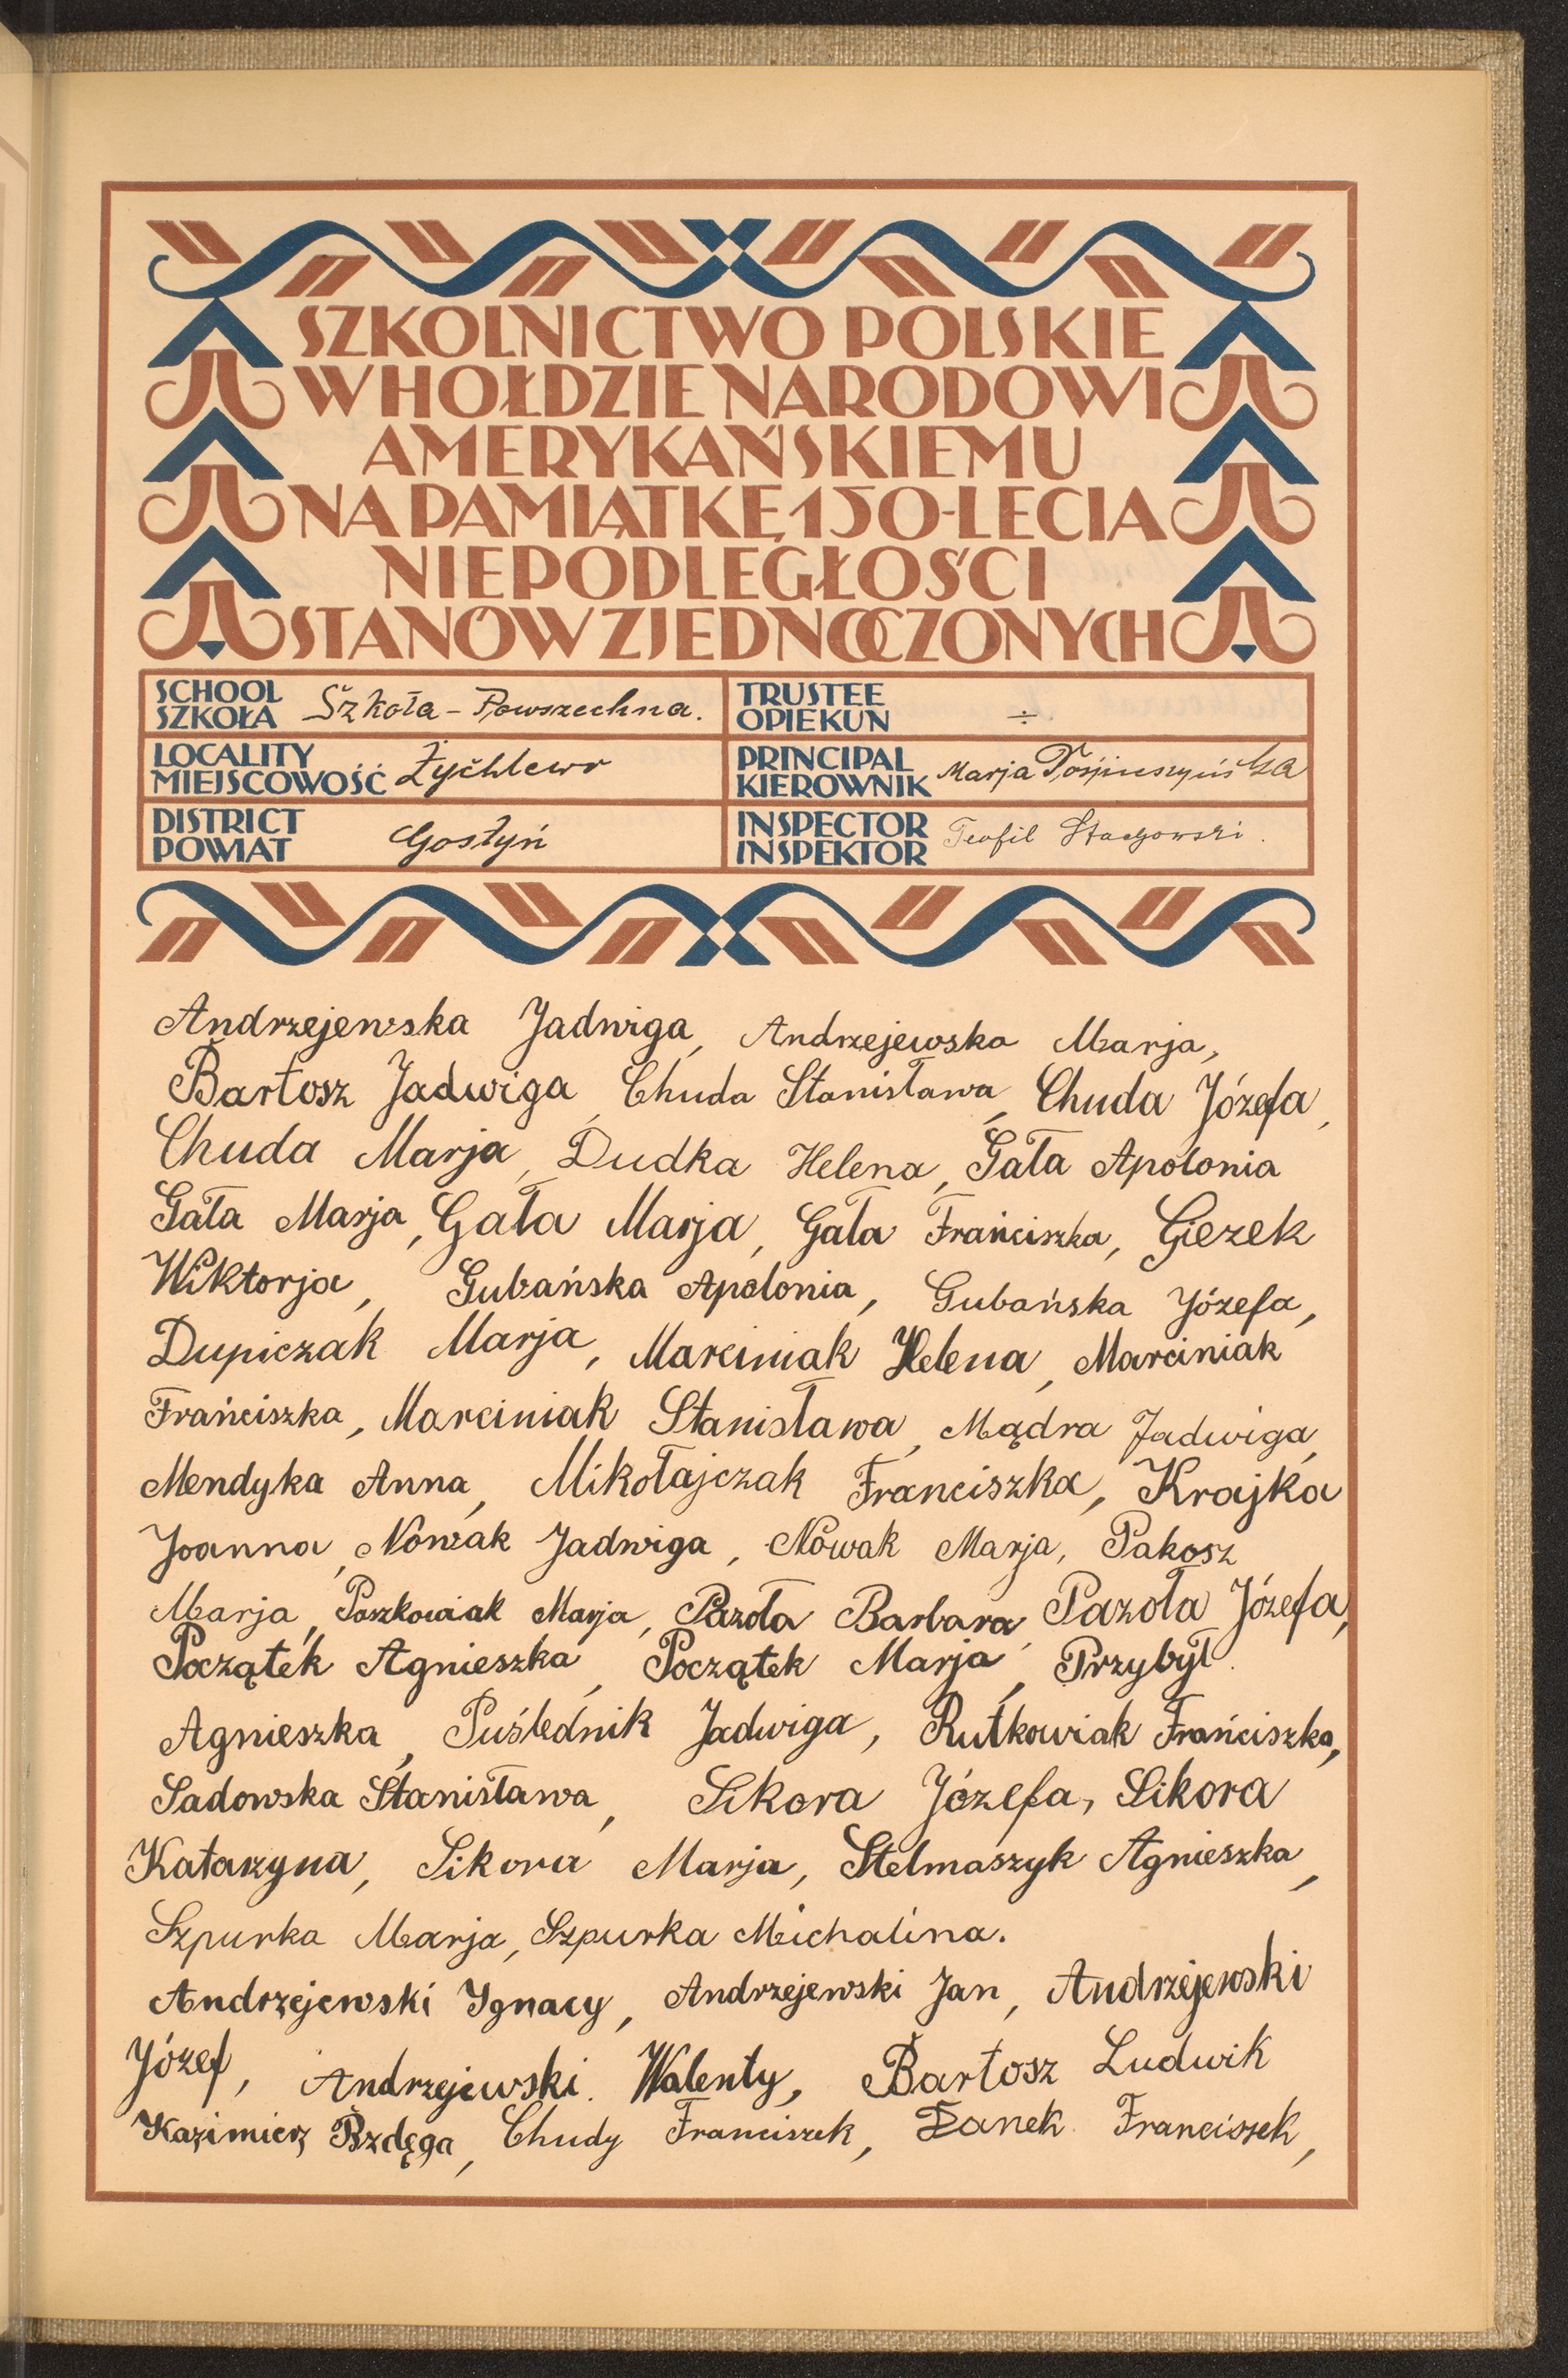 SZKOLNICTWO POLSKIE
W HOŁDZIE NARODOWI
AMERYKAŃSKIEMU
NA PAMIĄTKĘ 150-LECIA
NIEPODLEGŁOŚCI
STANÓW ZJEDNOCZONYCH
SCHOOL
SZKOŁA Szkoła - Powszechna.
TRUSTEE
OPIEKUN ÷
LOCALITY
MIEJSCOWOŚĆ Żychlewo
PRINCIPAL
KIEROWNIK Marja
DISTRICT
POWIAT Gostyń
INSPECTOR
INSPEKTOR Teofil Stachowski.
Andrzejewska Jadwiga, Andrzejewska Marja,
Bartosz Jadwiga, Chuda Stanisława, Chuda Józefa,
Chuda Marja, Dudka Helena, Gała Apolonia
Gała Marja, Gała Marja, Gała Frańciszka, Giezek
Wiktorja, Gubańska Apolonia, Gubańska Józefa,
Dupiczak Marja, Marciniak Helena, Marciniak
Frańciszka, Marciniak Stanisława, Mądra Jadwiga,
Mendyka Anna, Mikołajczak Franciszka, Krajka
Joanna, Nowak Jadwiga, Nowak Marja, Pakosz
Marja, Paszkowiak Marja, Pazoła Barbara, Pazoła Józefa,
Początek Agnieszka, Początek Marja, Przybył
Agnieszka, Puślednik Jadwiga, Rutkowiak Frańciszka,
Sadowska Stanisława, Sikora Józefa, Sikora
Katarzyna, Sikora Marja, Stelmaszyk Agnieszka,
Szpurka Marja, Szpurka Michalina.
Andrzejewski Ignacy, Andrzejewski Jan, Andrzejewski
Józef, Andrzejewski Walenty, Bartosz Ludwik
Kazimierz Bzdęga, Chudy Franciszek, Danek Franciszek,